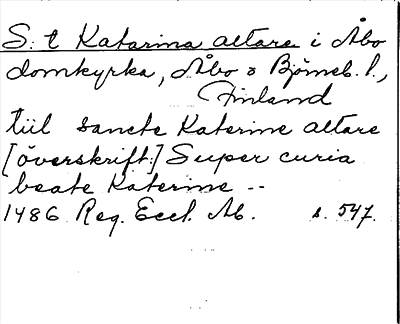 S:t Katarina altare i Åbo
domkyrka, Åbo o Björneb. l.,
Finland
tiil sancte Katerine altare
[överskrift:] Super curia
beate Katerine --
1486 Reg. Eccl. Ab. s. 547.